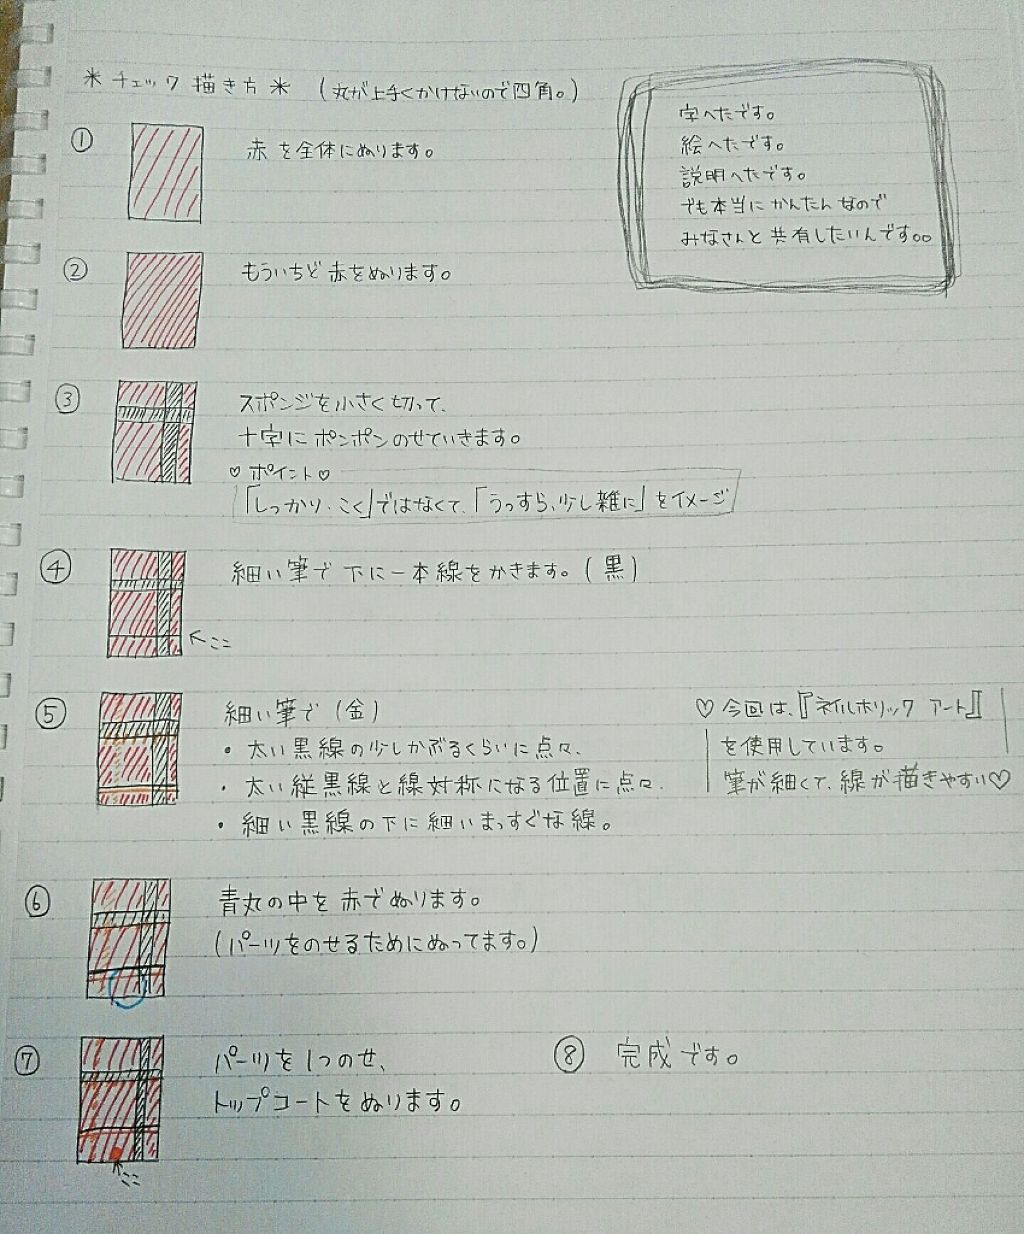 ＊チェック描き方＊ (丸が上手くかけないので四角。)
字へたです。
絵へたです。
説明へたです。
でも本当にかんたんなので
みなさんと共有したいんです。。
① 赤を全体にぬります。
② もういちど赤をぬります。
③ スポンジを小さく切って、
十字にポンポンのせていきます。
♡ポイント♡
「しっかり・こく」ではなくて、「うっすら、少し雑に」をイメージ
④ 細い筆で下に一本線をかきます。(黒)
←ここ
⑤ 細い筆で(金)
・太い黒線の少しかぶるくらいに点々、
・太い縦黒線と線対称になる位置に点々、
・細い黒線の下に細いまっすぐな線。
♡今回は、『ネイルホリック アート』
を使用しています。
筆が細くて、線が描きやすい♡
⑥ 青丸の中を赤でぬります。
(パーツをのせるためにぬってます。)
⑦ パーツを1つのせ、
トップコートをぬります。
↑ここ
⑧ 完成です。